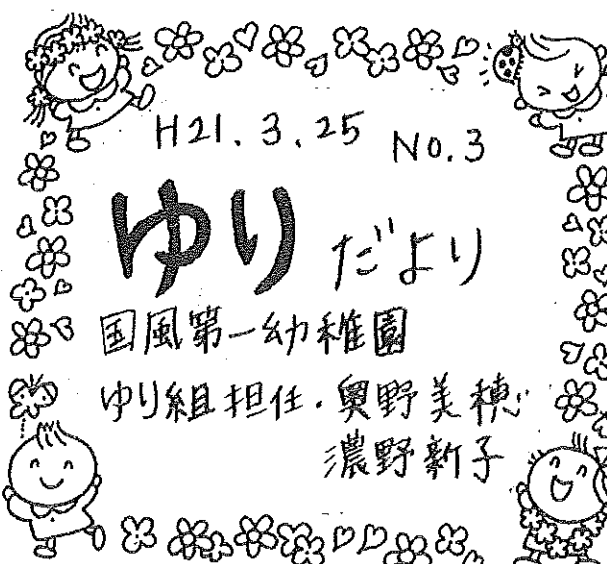 H21.3.25 No.3
ゆり だより
国風第一幼稚園
ゆり組担任・奥野美穂
濃野新子